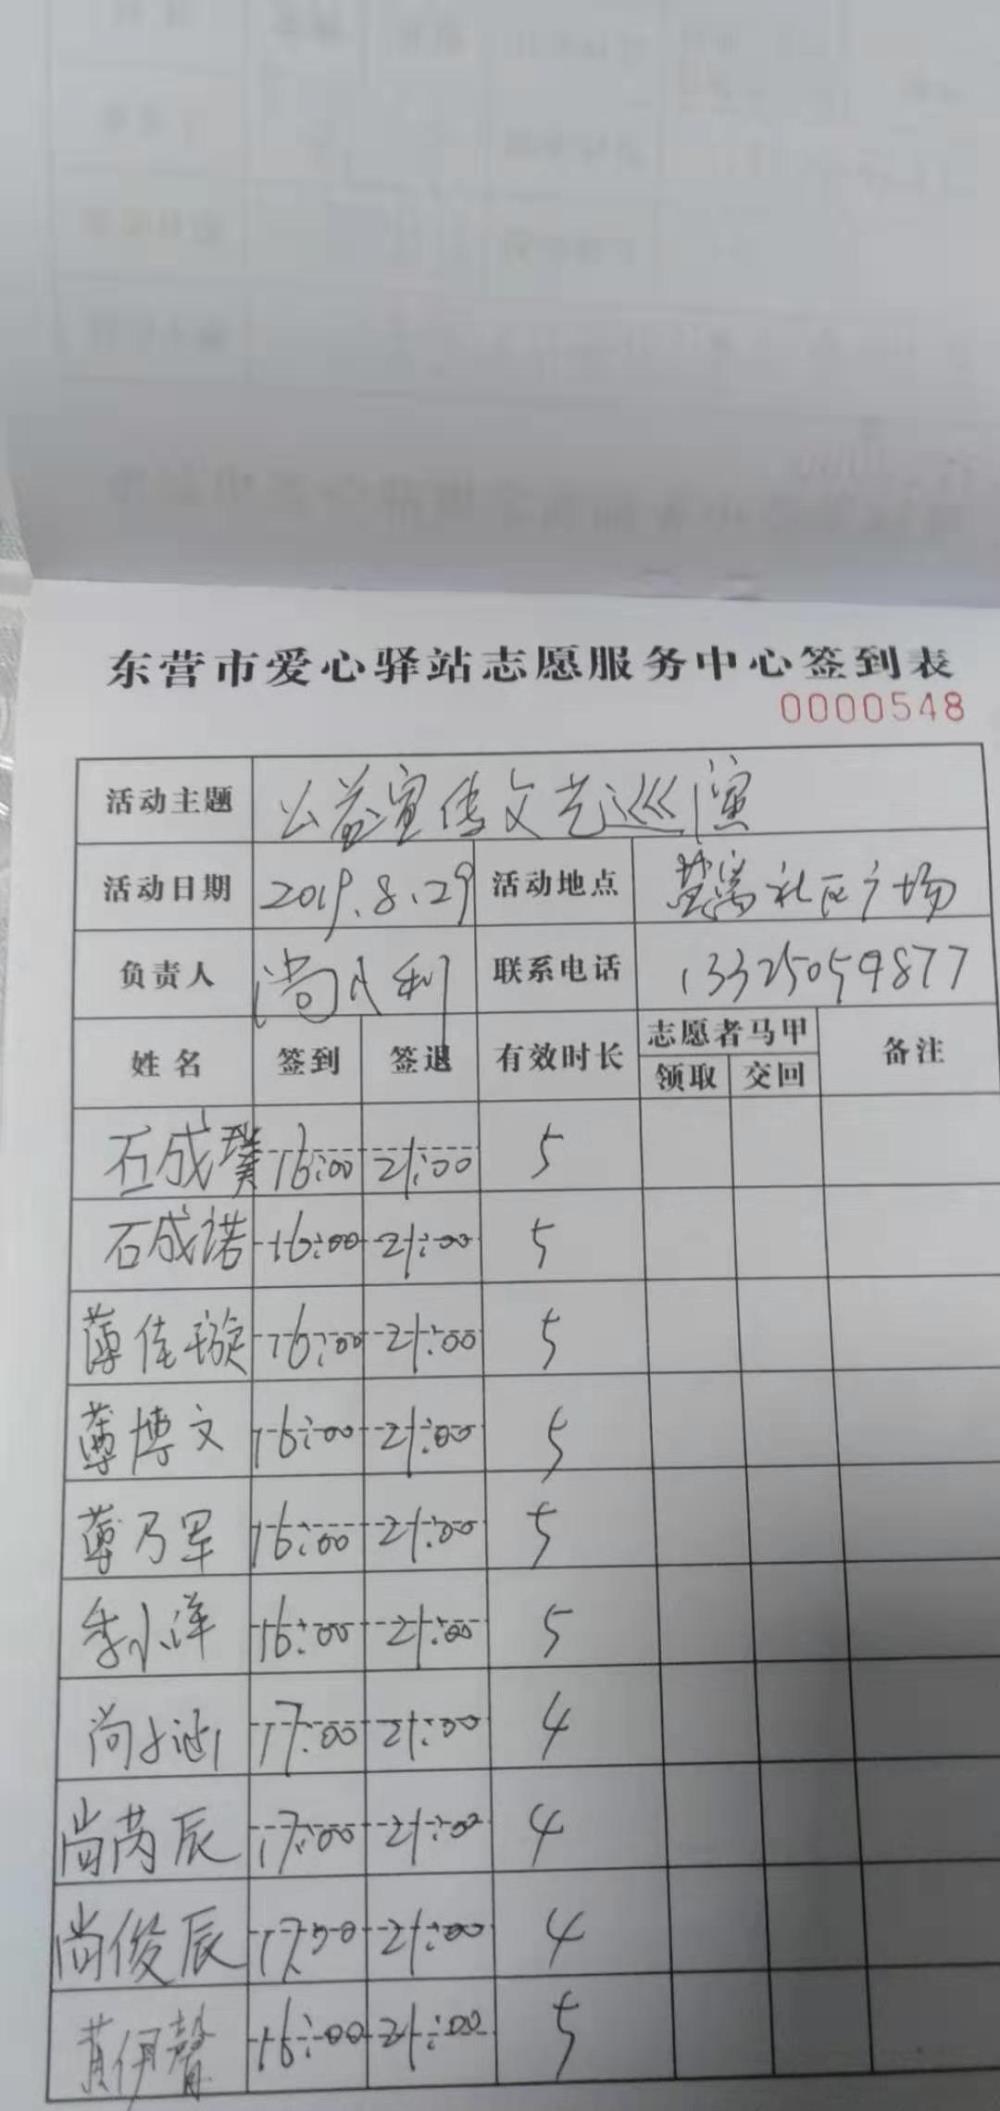 东营市爱心驿站志愿服务中心签到表
0000548
活动主题 公益宣传文艺巡演
活动日期 2019.8.29 活动地点 社区广场
负责人 尚 利 联系电话 13325059877
姓名 签到 签退 有效时长 志愿者马甲 备注
领取 交回
石成璞 16:00 21:00 5
石成诺 16:00 21:00 5
薄佳璇 16:00 21:00 5
薄博文 16:00 21:00 5
薄乃军 16:00 21:00 5
季小洋 16:00 21:00 5
尚 涵 17:00 21:00 4
尚芮辰 17:00 21:00 4
尚俊辰 17:00 21:00 4
黄伊馨 16:00 21:00 5